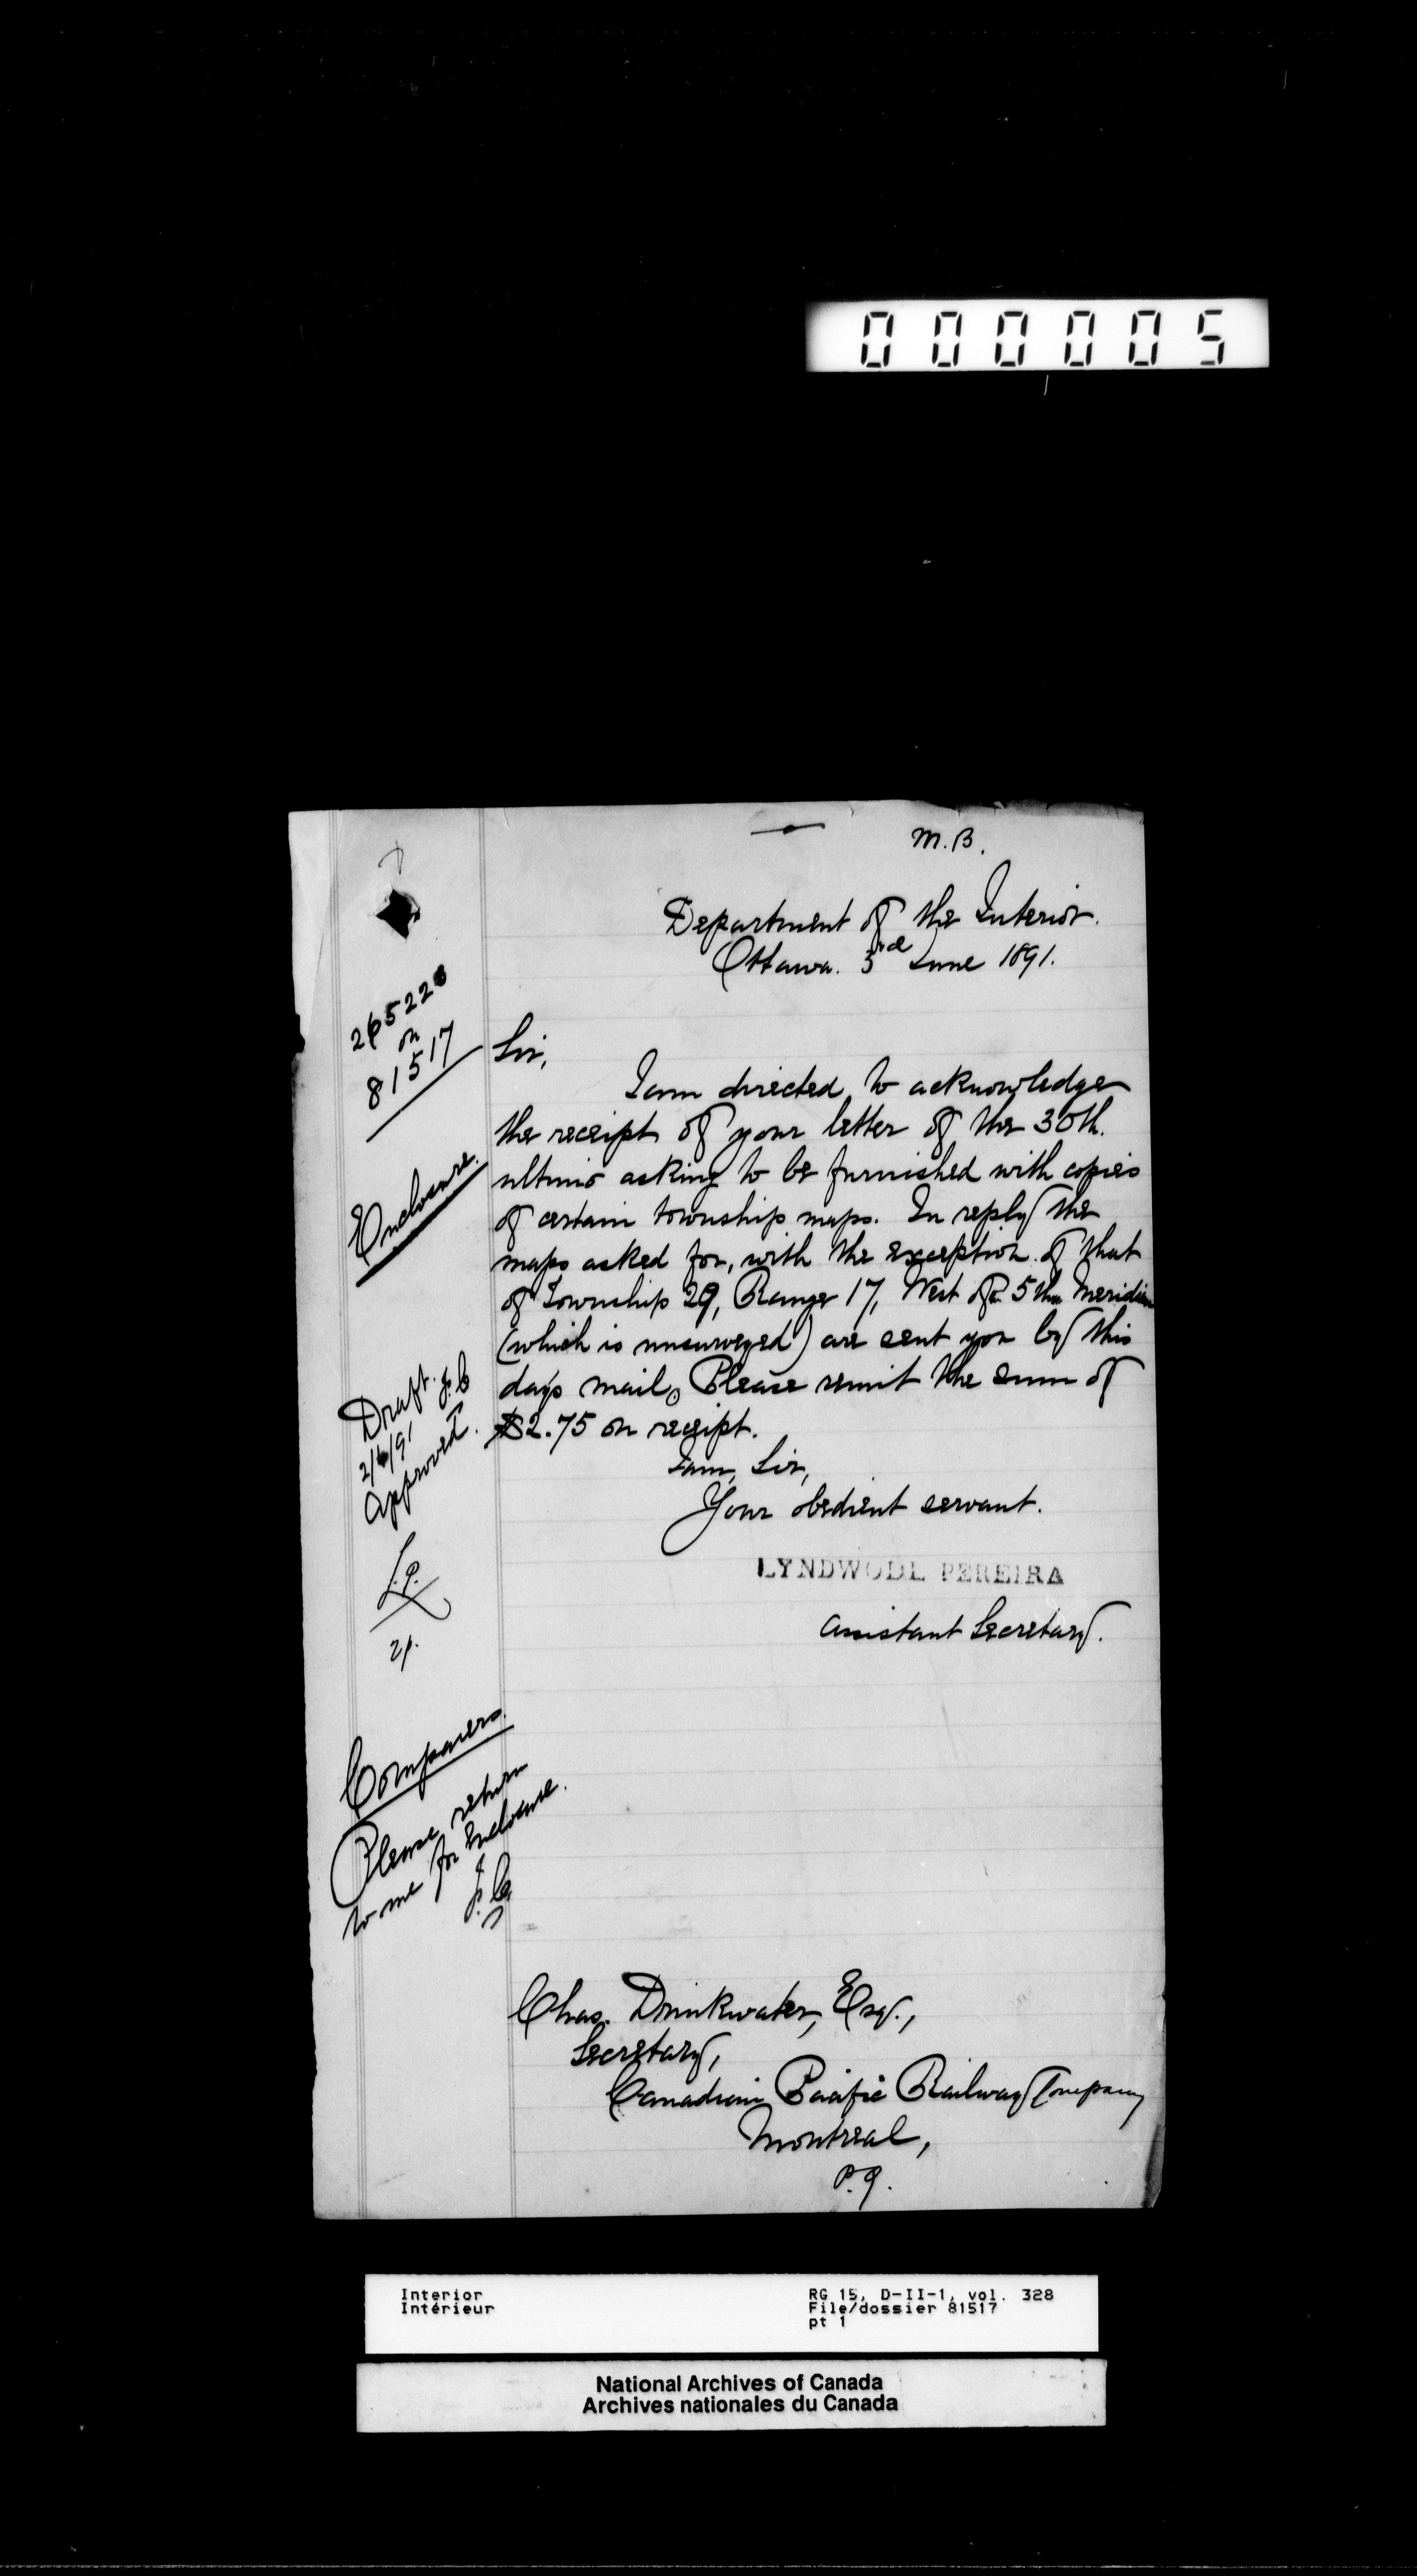 000005
M.B.
Department of the Interior.
Ottawa. 3rd June 1891.
265226
on
81517
Sir,
I am directed to acknowledge
the receipt of your letter of the 30th.
ultimo asking to be furnished with copies
of certain township maps. In reply the
maps asked for, with the exception of that
of Township 29, Range 17, West of 5th Meridian
(which is unsurveyed) are sent you by this
days mail. Please remit the sum of
$2.75 on receipt.
I am, Sir,
Your obedient servant.
LYNDWODE PEREIRA
Assistant Secretary.
Enclosure.
Draft. J.C
2/6/91
Approved.
L.P.
Comparers.
Please return
to me for Enclosure.
J.C.
Chas. Drinkwater, Esq.,
Secretary,
Canadian Pacific Railway Company
Montreal,
P.Q.
Interior
Intérieur
RG 15, D-II-1, vol. 328
File/dossier 81517
pt 1
National Archives of Canada
Archives nationales du Canada